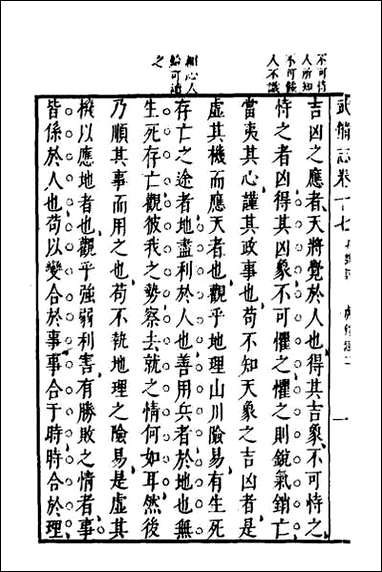 不可恃
人所知
不可懼
人不識
武備志卷十七
吉凶之應者天將覺於人也得其吉象不可恃之
恃之者凶得其凶象不可懼之懼之則銳氣銷亡
當夷其心謹其政事也苟不知天象之吉凶者是
虛其機而應天者也觀乎地理山川險易有生死
存亡之途者地盡利於人也善用兵者於地也無
生死存亡觀彼我之勢察去就之情何如耳然後
乃順其事而用之也苟不執地理之險易是虛其
機以應地者也觀乎強弱利害有勝敗之情者事
皆係於人也苟以變合於事事合于時時合於理